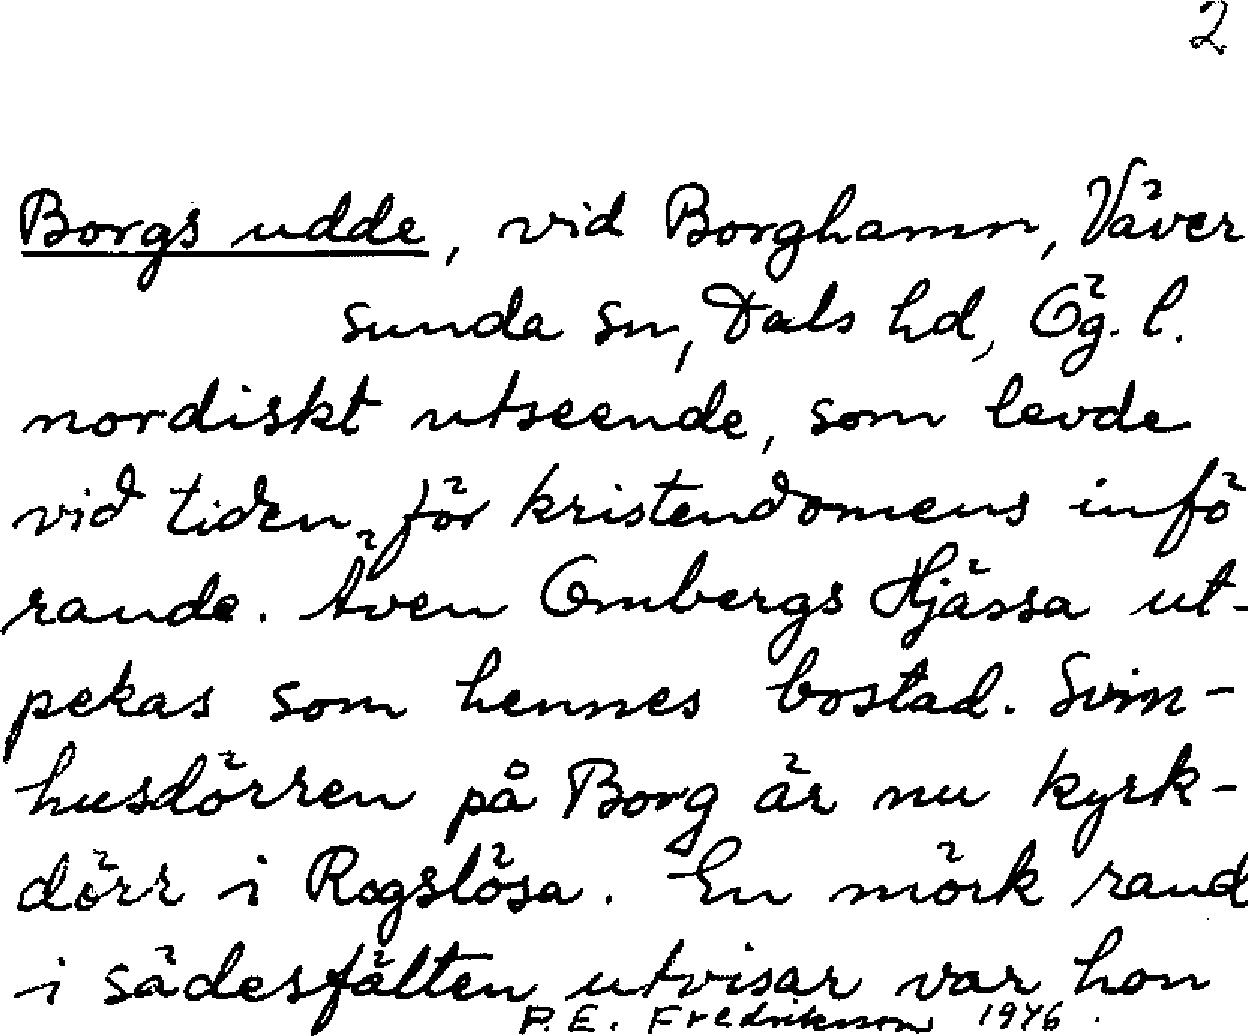 2
Borgs udde, vid Borghamn, Väver
sunda sn, Dals hd, Ög. l.
nordiskt utseende, som levde
vid tiden för kristendomens infö
rande. Även Ombergs Hjässa ut-
pekas som hennes bostad. Svin-
husdörren på Borg är nu kyrk-
dörr i Rogslösa. En mörk rand
i sädesfälten utvisar var hon
P. E. Fredriksson 1946.